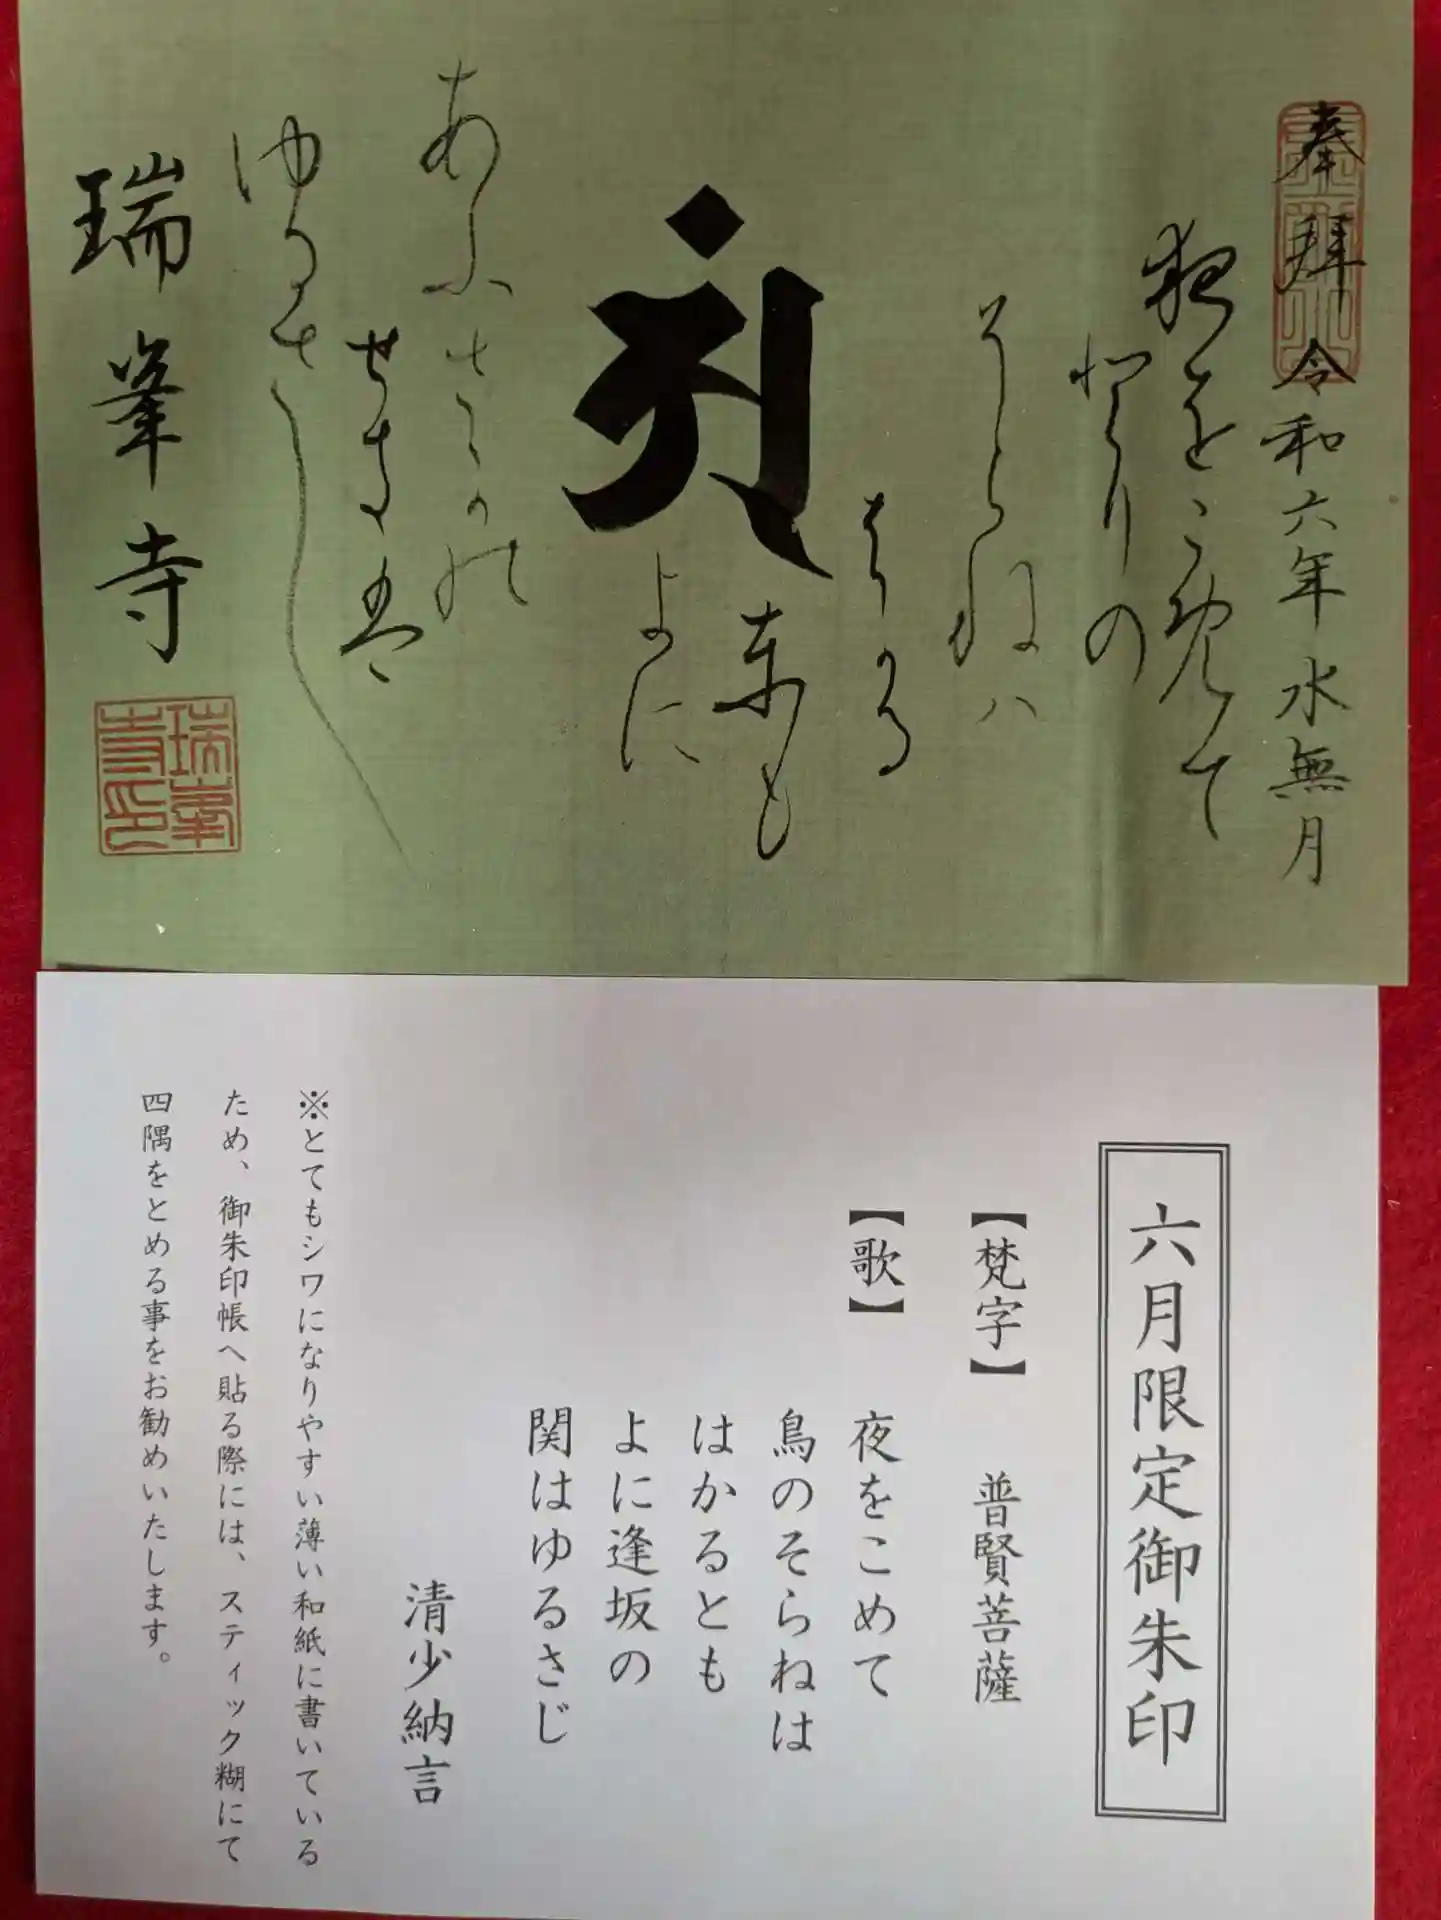 奉拝 令和六年水無月
夜をこめて
とりの
そらねハ
はかる
とも
よに
あふさかの
せきは
ゆるさし
瑞峯寺
瑞峯寺印
六月限定御朱印
【梵字】 普賢菩薩
【歌】 夜をこめて
鳥のそらねは
はかるとも
よに逢坂の
関はゆるさじ
清少納言
※とてもシワになりやすい薄い和紙に書いている
ため、御朱印帳へ貼る際には、スティック糊にて
四隅をとめる事をお勧めいたします。